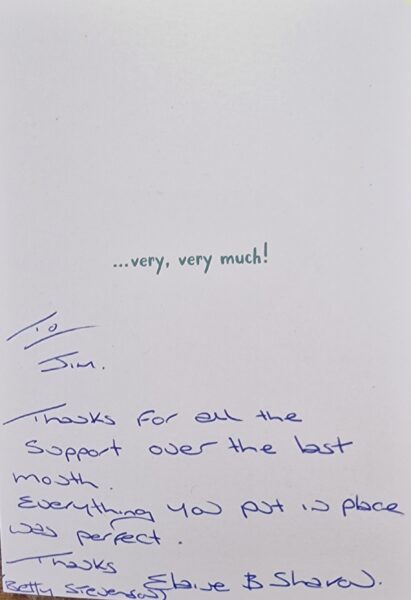 ...very, very much!
To
Jim.
Thanks for all the
Support over the last
month.
Everything you put in place
was perfect.
Thanks
Elaine B Sharon.
(Betty Stevenson)